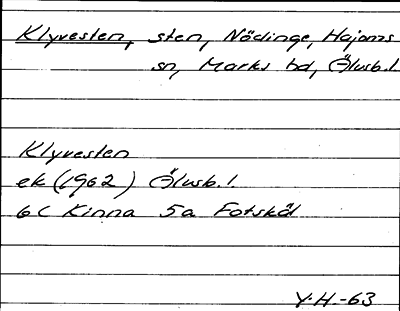 Klyvesten, sten, Nödinge, Hajoms
sn, Marks hd, Älvsb.l.
Klyvesten
ek (1962) Älvsb.l.
6C Kinna 5a Fotskäl
Y.H.-63